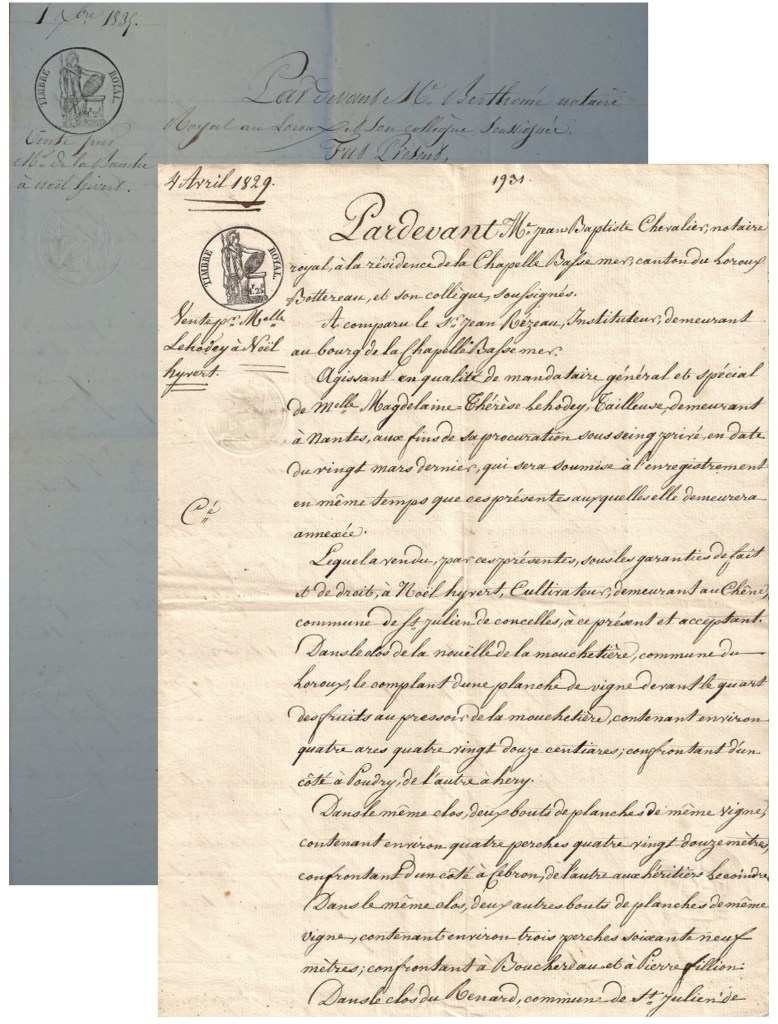 1 Xbre 1835.
TIMBRE ROYAL.
Pardevant Me. Berthomé notaire
Royal au Loroux et son collègue soussignés.
Fut Présent,
Vente par
Mr de la Bauche
à noël hivert.
4 Avril 1829.
1931.
TIMBRE ROYAL.
Vente pr. Melle
Lehodey à Noël
hyvert.
Cé
Pardevant Me. Jean Baptiste Chevalier, notaire
royal, à la résidence de la Chapelle Basse mer, canton du Loroux
Bottereau, et son collègue, soussignés.
A comparu le Sr. Jean Rézeau, Instituteur, demeurant
au bourg de la Chapelle Basse mer.
Agissant en qualité de mandataire général et spécial
de Melle Magdelaine=Thérèse Lehodey, Tailleuse, demeurant
à Nantes, aux fins de sa procuration sous seing privé, en date
du vingt mars dernier, qui sera soumise à l'enregistrement
en même temps que ces présentes auxquelles elle demeurera
annexée.
Lequel a vendu, par ces présentes, sous les garanties de fait
et de droit, à Noël hyvert, Cultivateur, demeurant au Chêne,
commune de St. Julien de concelles, à ce présent et acceptant.
Dans le clos de la nouille de la mouchetière, commune du
Loroux, le complant d'une planche de vigne devant le quart
des fruits au pressoir de la mouchetière, contenant environ
quatre ares quatre vingt douze centiares; confrontant d'un
côté à Poudry, de l'autre à héry.
Dans le même clos, deux bouts de planches de même vigne,
contenant environ quatre perches quatre vingt douze mètres,
confrontant d'un côté à Cebron, de l'autre aux héritiers Lecoindre.
Dans le même clos, deux autres bouts de planches de même
vigne, contenant environ trois perches soixante neuf
mètres; confrontant à Bouchereau et à Pierre fillion.
Dans le clos du Renard, commune de St. Julien de